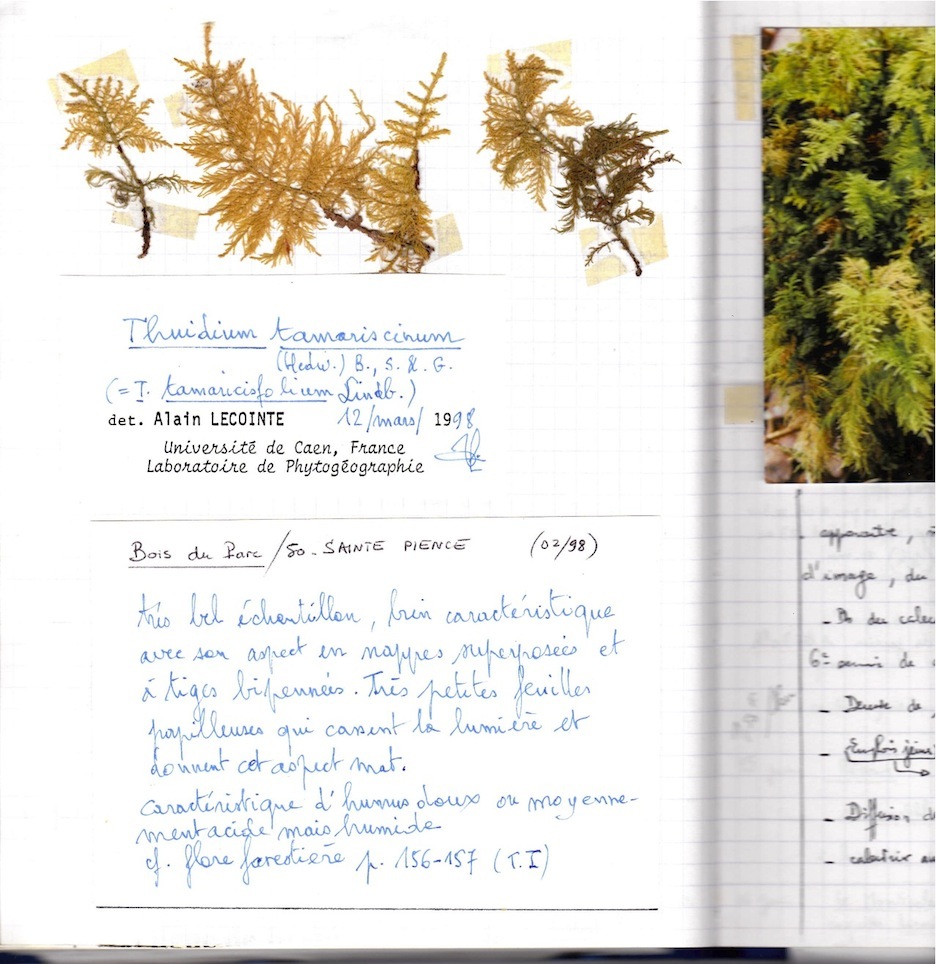 Thuidium tamariscinum
(Hedw.) B., S. & G.
(= T. tamaricisfolium Lindb.)
det. Alain LECOINTE 12/mars/ 1998
Université de Caen, France
Laboratoire de Phytogéographie
Bois du Parc / 50 - SAINTE PIENCE (02/98)
très bel échantillon, bien caractéristique
avec son aspect en nappes superposées et
à tiges bipennées. Très petites feuilles
papilleuses qui cassent la lumière et
donnent cet aspect mat.
Caractéristique d'humus doux ou moyenne-
ment acide mais humide
cf. flore forestière p. 156-157 (T.I)
apparaitre,
d'image, du
6e
- Diffusion